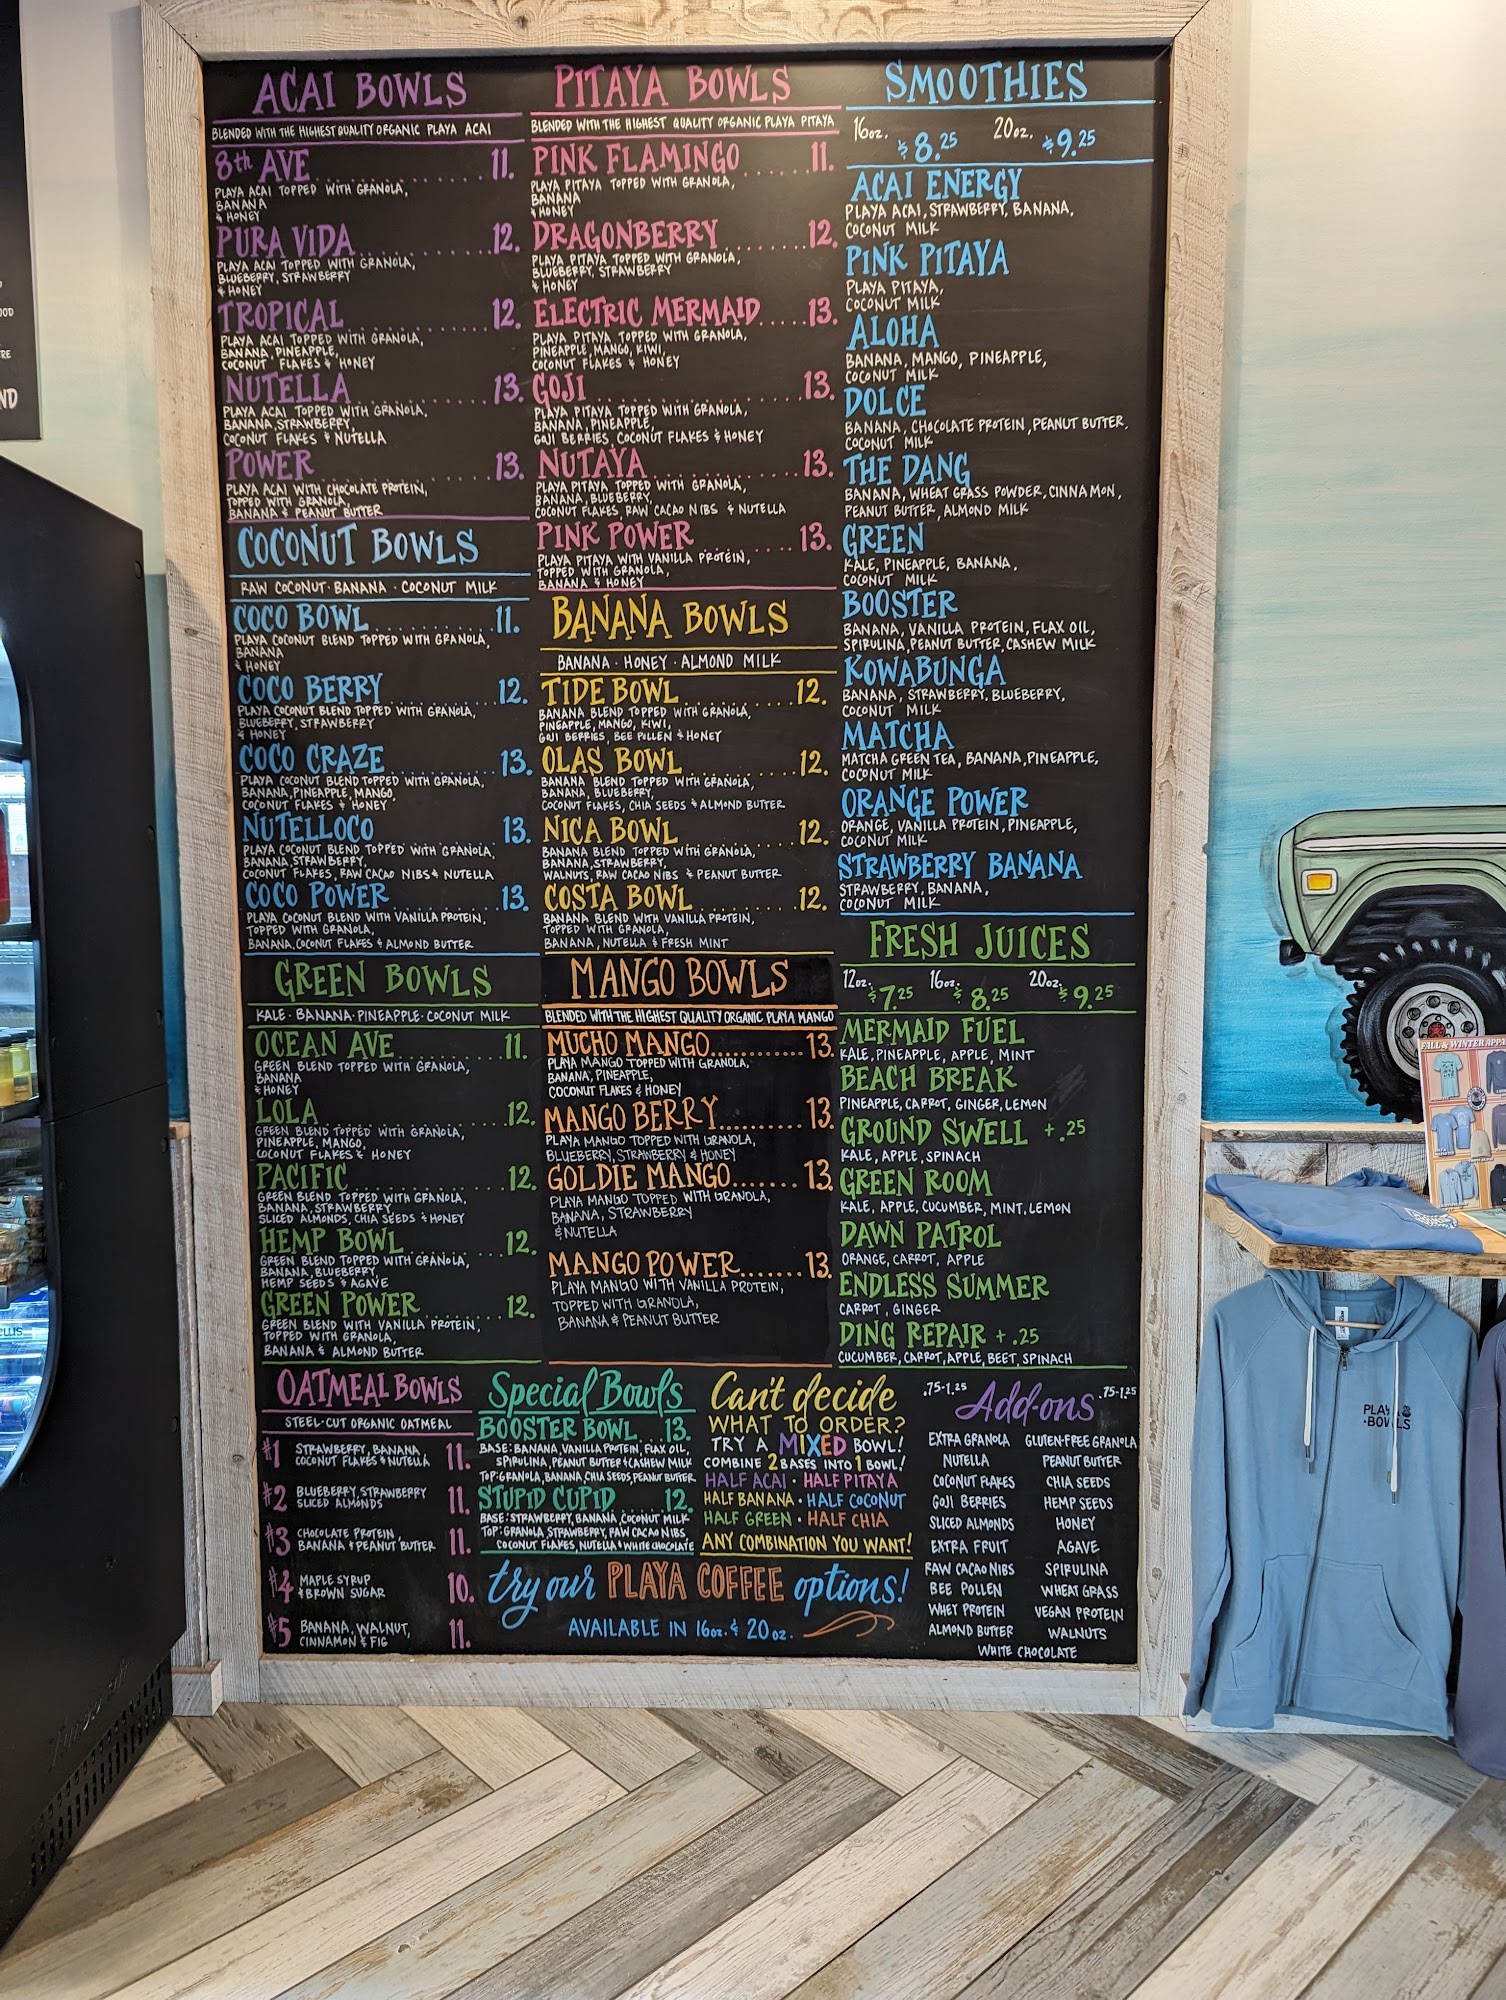 ACAI BOWLS
BLENDED WITH THE HIGHEST QUALITY ORGANIC PLAYA ACAI
8th AVE 11.
PLAYA ACAI TOPPED WITH GRANOLA,
BANANA
& HONEY
PURA VIDA.............12.
PLAYA ACAI TOPPED WITH GRANOLA,
BLUEBERRY, STRAWBERRY
& HONEY
TROPICAL..............12.
PLAYA ACAI TOPPED WITH GRANOLA,
BANANA, PINEAPPLE,
COCONUT FLAKES & HONEY
NUTELLA...............13.
PLAYA ACAI TOPPED WITH GRANOLA,
BANANA, STRAWBERRY,
COCONUT FLAKES & NUTELLA
POWER.................13.
PLAYA ACAI WITH CHOCOLATE PROTEIN,
TOPPED WITH GRANOLA,
BANANA & PEANUT BUTTER
COCONUT BOWLS
RAW COCONUT · BANANA · COCONUT MILK
COCO BOWL.............11.
PLAYA COCONUT BLEND TOPPED WITH GRANOLA,
BANANA
& HONEY
COCO BERRY............12.
PLAYA COCONUT BLEND TOPPED WITH GRANOLA,
BLUEBERRY, STRAWBERRY
& HONEY
COCO CRAZE............13.
PLAYA COCONUT BLEND TOPPED WITH GRANOLA,
BANANA, PINEAPPLE, MANGO
COCONUT FLAKES & HONEY
NUTELLOCO.............13.
PLAYA COCONUT BLEND TOPPED WITH GRANOLA,
BANANA, STRAWBERRY,
COCONUT FLAKES, RAW CACAO NIBS & NUTELLA
COCO POWER............13.
PLAYA COCONUT BLEND WITH VANILLA PROTEIN,
TOPPED WITH GRANOLA,
BANANA, COCONUT FLAKES & ALMOND BUTTER
GREEN BOWLS
KALE · BANANA · PINEAPPLE · COCONUT MILK
OCEAN AVE.............11.
GREEN BLEND TOPPED WITH GRANOLA,
BANANA
& HONEY
LOLA..................12.
GREEN BLEND TOPPED WITH GRANOLA,
PINEAPPLE, MANGO,
COCONUT FLAKES & HONEY
PACIFIC...............12.
GREEN BLEND TOPPED WITH GRANOLA,
BANANA, STRAWBERRY,
SLICED ALMONDS, CHIA SEEDS & HONEY
HEMP BOWL.............12.
GREEN BLEND TOPPED WITH GRANOLA,
BANANA, BLUEBERRY,
HEMP SEEDS & AGAVE
GREEN POWER...........12.
GREEN BLEND WITH VANILLA PROTEIN,
TOPPED WITH GRANOLA,
BANANA & ALMOND BUTTER
PITAYA BOWLS
BLENDED WITH THE HIGHEST QUALITY ORGANIC PLAYA PITAYA
PINK FLAMINGO.......11.
PLAYA PITAYA TOPPED WITH GRANOLA,
BANANA
& HONEY
DRAGONBERRY.........12.
PLAYA PITAYA TOPPED WITH GRANOLA,
BLUEBERRY, STRAWBERRY
& HONEY
ELECTRIC MERMAID.....13.
PLAYA PITAYA TOPPED WITH GRANOLA,
PINEAPPLE, MANGO, KIWI,
COCONUT FLAKES & HONEY
GOJI................13.
PLAYA PITAYA TOPPED WITH GRANOLA,
BANANA, PINEAPPLE,
GOJI BERRIES, COCONUT FLAKES & HONEY
NUTAYA..............13.
PLAYA PITAYA TOPPED WITH GRANOLA,
BANANA, BLUEBERRY,
COCONUT FLAKES, RAW CACAO NIBS & NUTELLA
PINK POWER..........13.
PLAYA PITAYA WITH VANILLA PROTEIN,
TOPPED WITH GRANOLA,
BANANA & HONEY
BANANA BOWLS
BANANA · HONEY · ALMOND MILK
TIDE BOWL...........12.
BANANA BLEND TOPPED WITH GRANOLA,
PINEAPPLE, MANGO, KIWI,
GOJI BERRIES, BEE POLLEN & HONEY
OLAS BOWL...........12.
BANANA BLEND TOPPED WITH GRANOLA,
BANANA, BLUEBERRY,
COCONUT FLAKES, CHIA SEEDS & ALMOND BUTTER
NICA BOWL...........12.
BANANA BLEND TOPPED WITH GRANOLA,
BANANA, STRAWBERRY,
WALNUTS, RAW CACAO NIBS & PEANUT BUTTER
COSTA BOWL..........12.
BANANA BLEND WITH VANILLA PROTEIN,
TOPPED WITH GRANOLA,
BANANA, NUTELLA & FRESH MINT
MANGO BOWLS
BLENDED WITH THE HIGHEST QUALITY ORGANIC PLAYA MANGO
MUCHO MANGO...........13.
PLAYA MANGO TOPPED WITH GRANOLA,
BANANA, PINEAPPLE,
COCONUT FLAKES & HONEY
MANGO BERRY..........13.
PLAYA MANGO TOPPED WITH GRANOLA,
BLUEBERRY, STRAWBERRY & HONEY
GOLDIE MANGO........13.
PLAYA MANGO TOPPED WITH GRANOLA,
BANANA, STRAWBERRY
& NUTELLA
MANGO POWER.......13.
PLAYA MANGO WITH VANILLA PROTEIN,
TOPPED WITH GRANOLA,
BANANA & PEANUT BUTTER
SMOOTHIES
16oz. $8.25 20oz. $9.25
ACAI ENERGY
PLAYA ACAI, STRAWBERRY, BANANA,
COCONUT MILK
PINK PITAYA
PLAYA PITAYA,
COCONUT MILK
ALOHA
BANANA, MANGO, PINEAPPLE,
COCONUT MILK
DOLCE
BANANA, CHOCOLATE PROTEIN, PEANUT BUTTER.
COCONUT MILK
THE DANG
BANANA, WHEAT GRASS POWDER, CINNAMON,
PEANUT BUTTER, ALMOND MILK
GREEN
KALE, PINEAPPLE, BANANA,
COCONUT MILK
BOOSTER
BANANA, VANILLA PROTEIN, FLAX OIL,
SPIRULINA, PEANUT BUTTER, CASHEW MILK
KOWABUNGA
BANANA, STRAWBERRY, BLUEBERRY,
COCONUT MILK
MATCHA
MATCHA GREEN TEA, BANANA, PINEAPPLE,
COCONUT MILK
ORANGE POWER
ORANGE, VANILLA PROTEIN, PINEAPPLE,
COCONUT MILK
STRAWBERRY BANANA
STRAWBERRY, BANANA,
COCONUT MILK
FRESH JUICES
12oz. $7.25 16oz. $8.25 20oz. $9.25
MERMAID FUEL
KALE, PINEAPPLE, APPLE, MINT
BEACH BREAK
PINEAPPLE, CARROT, GINGER, LEMON
GROUND SWELL +.25
KALE, APPLE, SPINACH
GREEN ROOM
KALE, APPLE, CUCUMBER, MINT, LEMON
DAWN PATROL
ORANGE, CARROT, APPLE
ENDLESS SUMMER
CARROT, GINGER
DING REPAIR +.25
CUCUMBER, CARROT, APPLE, BEET, SPINACH
OATMEAL BOWLS
STEEL-CUT ORGANIC OATMEAL
#1 STRAWBERRY, BANANA 11.
COCONUT FLAKES & NUTELLA
#2 BLUEBERRY, STRAWBERRY 11.
SLICED ALMONDS
#3 CHOCOLATE PROTEIN, 11.
BANANA & PEANUT BUTTER
#4 MAPLE SYRUP 10.
& BROWN SUGAR
#5 BANANA, WALNUT, 11.
CINNAMON & FIG
Special Bowls
BOOSTER BOWL...13.
BASE: BANANA, VANILLA PROTEIN, FLAX OIL,
SPIRULINA, PEANUT BUTTER & CASHEW MILK
TOP: GRANOLA, BANANA, CHIA SEEDS, PEANUT BUTTER
STUPID CUPID....12.
BASE: STRAWBERRY, BANANA, COCONUT MILK
TOP: GRANOLA, STRAWBERRY, RAW CACAO NIBS
COCONUT FLAKES, NUTELLA & WHITE CHOCOLATE
Can't decide
WHAT TO ORDER?
TRY A MIXED BOWL!
COMBINE 2 BASES INTO 1 BOWL!
HALF ACAI · HALF PITAYA
HALF BANANA · HALF COCONUT
HALF GREEN · HALF CHIA
ANY COMBINATION YOU WANT!
try our PLAYA COFFEE options!
AVAILABLE IN 16oz. & 20oz.
.75-1.25 Add-ons .75-1.25
EXTRA GRANOLA GLUTEN-FREE GRANOLA
NUTELLA PEANUT BUTTER
COCONUT FLAKES CHIA SEEDS
GOJI BERRIES HEMP SEEDS
SLICED ALMONDS HONEY
EXTRA FRUIT AGAVE
RAW CACAO NIBS SPIRULINA
BEE POLLEN WHEAT GRASS
WHEY PROTEIN VEGAN PROTEIN
ALMOND BUTTER WALNUTS
WHITE CHOCOLATE
FALL & WINTER APPA
PLAYA
BOWLS